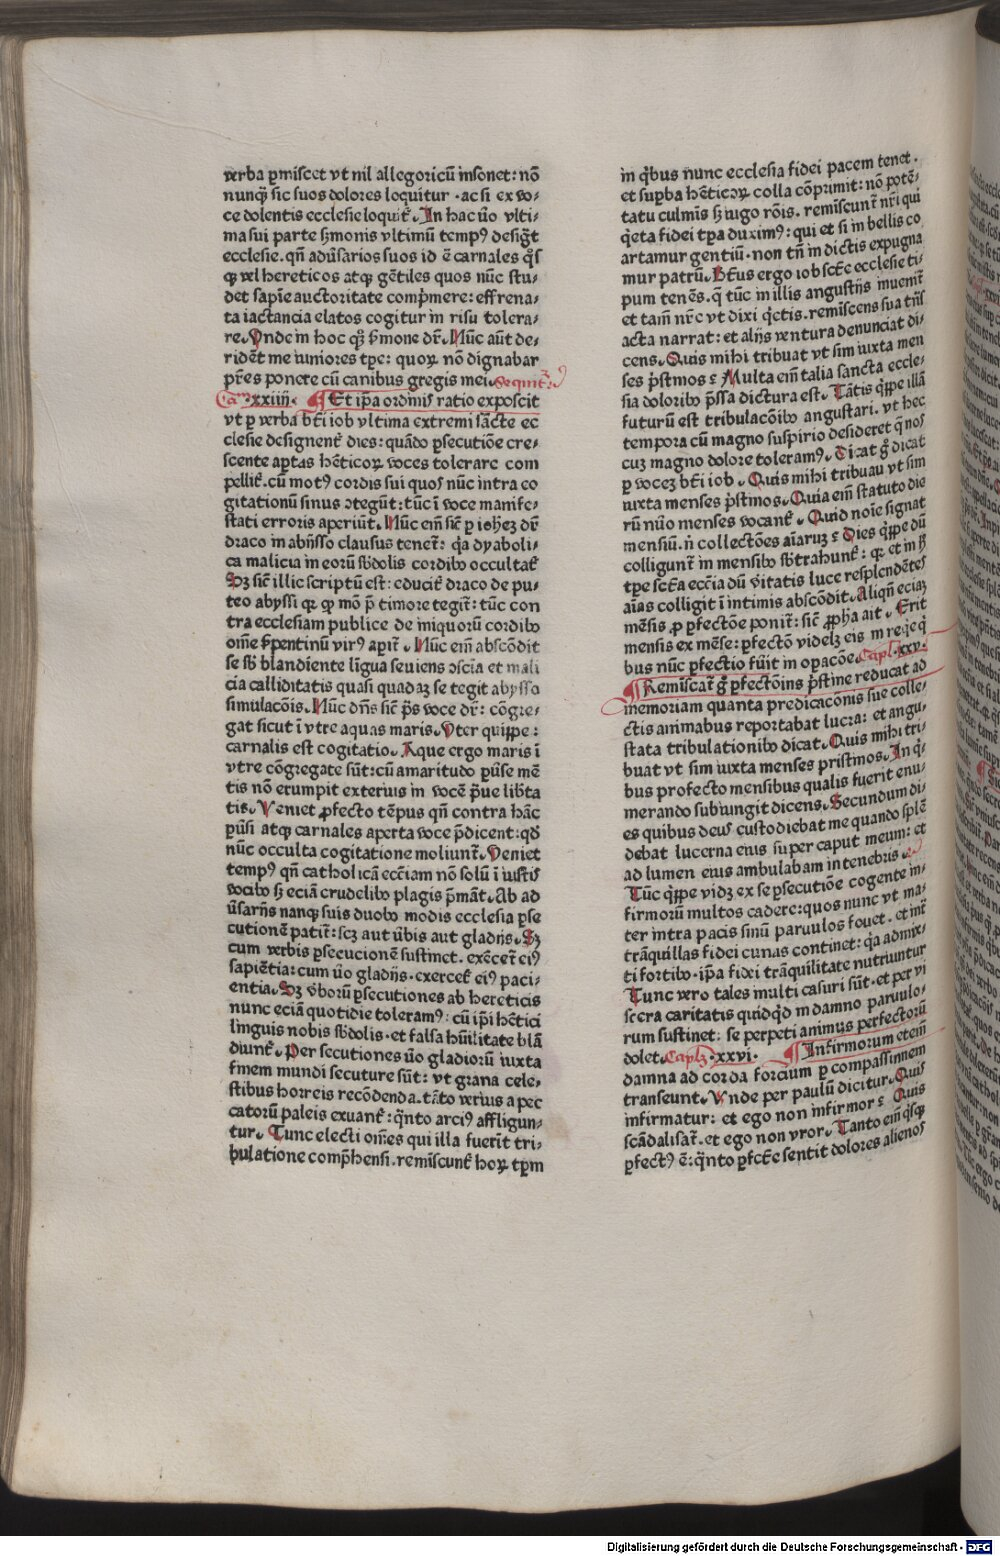 verba p̱miscet vt nil allegoricū insonet: nō
nunqꝫ sic suos dolores loquitur · ac si ex vo⸗
ce dolentis ecclesie loquit᷑. In hac v̄o vlti⸗
ma sui parte s̱monis vltimū tempꝰ desigt̄
ecclesie. qn̄ adūsarios suos id ē carnales qͦs
qꝫ vel hereticos atqꝫ gētiles quos nūc stu⸗
det sapīe auctoritate comp̱mere: effrena⸗
ta iactancia elatos cogitur in risu tolera⸗
re. Vnde in hoc qꝫ s̱mone dr̄. Nūc aūt de⸗
ridēt me iuniores tp̄e: quoꝝ nō dignabar
pr̄es ponere cū canibus gregis mei. Sequit᷑
Cam xxiiij. ¶ Et ip̄a ordinis ratio exposcit
vt p̱ verba bt̄i iob vltima extremi sācte ec
clesie designent᷑ dies: quādo p̱secutiōe cre⸗
scente aptas hēticoꝝ voces tolerare com
pellit᷑. cū motꝰ cordis sui quos nūc intra co
gitationū sinus ꝯtegūt: tūc ī voce manife⸗
stati erroris aperiūt. Nūc em̄ sic̄ p̱ iohez dr̄
draco in abysso clausus tenet᷑: qꝛ dyaboli⸗
ca malicia in eorū sb̄dolis cordibꝰ occultat᷑
Sꝫ sic̄ illic scriptū est: educit᷑ draco de pu⸗
teo abyssi qꝛ qꝫ mō p̄ timore tegit᷑: tūc con
tra ecclesiam publice de iniquorū cordibꝰ
om̄e s̱pentinū virꝰ apit᷑. Nūc em̄ abscōdit
se sb̄ blandiente līgua seuiens ꝯscia et mali
cia calliditatis quasi quadaꝫ se tegit abysso
simulacōis. Nūc dn̄s sic̄ p̄s voce dr̄: cōgre⸗
gat sicut ī vtre aquas maris. Vter quippe:
carnalis est cogitatio. Aque ergo maris ī
vtre cōgregate sūt: cū amaritudo p̱use mē
tis nō erumpit exterius in vocē p̱ue libta
tis. Veniet ꝓfecto tēpus qn̄ contra hāc
p̱usi atqꝫ carnales aperta voce p̄dicent: qd̄
nūc occulta cogitatione moliunt᷑. Veniet
tempꝰ qn̄ catholicā ecc̄iam nō solū ī iustis
vocibꝰ sꝫ eciā crudelibꝰ plagis p̄māt. Ab ad
ūsarijs nanqꝫ suis duobꝰ modis ecclesia p̱se
cutionē patit᷑: scꝫ aut v̄bis aut gladijs. Sꝫ
cum verbis p̱secucionē sustinet. exēcet᷑ eiꝰ
sapiētia: cum v̄o gladijs. exercet᷑ eiꝰ paci⸗
entia. Sꝫ v̄borū p̱secutiones ab hereticis
nunc eciā quotidie toleramꝰ: cū ip̄i hētici
linguis nobis sb̄dolis · et falsa hūilitate blā
diunt᷑. Per secutiones v̄o gladiorū iuxta
finem mundi secuture sūt: vt grana cele⸗
stibus horreis recōdenda. tāto verius a pec
catorū paleis exuant᷑: qͦnto arciꝰ affligun⸗
tur. Tunc electi om̄es qui illa fuerit tri⸗
bulatione comp̱hensi. reminscunt᷑ hoꝝ tp̄m
in qͥbus nunc ecclesia fidei pacem tenet.
et supba hēticoꝝ colla cōprimit: nō potē⸗
tatu culmīs sꝫ iugo rōis. remīscunt᷑ nr̄i qui
qͥeta fidei tpa duximꝰ: qui et si in bellis co
artamur gentiū · non tn̄ in dictis expugna
mur patrū. Btūs ergo iob scē ecclesie ti⸗
pum tenēs. qͥ tūc in illis angustijs inuenit᷑
et tam̄ nr̄e vt dixi qͥetis. remīscens sua tn̄s
acta narrat: et alijs ventura denunciat di⸗
cens. Quis mihi tribuat vt sim iuxta men
ses p̄stinos: Multa em̄ talia sancta eccle⸗
sia doloribꝰ p̄ssa dictura est. Tātis qꝑpe illā
futurū est tribulacōibꝰ angustari. vt hec
tempora cū magno suspirio desideret q̄ nos
cuꝫ magno dolore toleramꝰ. Dicat gͦ dicat
p̱ vocez bt̄i iob. Quis mihi tribuau vt sim
iuxta menses p̄stinos. Quia em̄ statuto die
rū nūo menses vocant᷑. Quid noīe signat
mensiū. n̄ collectōes aīaruꝫ: Dies qꝑpe dū
colligunt᷑ in mensibꝰ sb̄trahunt᷑: qꝛ et in hͦ
tp̄e scta ecc̄ia dū v̄itatis luce resplendētes
aīas colligit ī intimis abscōdit. Aliqn̄ eciaꝫ
mēsis ꝓ p̱fectōe ponit᷑: sic̄ ꝓpha ait. Erit
mensis ex mēse: p̱fectō videlꝫ eis in reqͥe qͥ
bus nūc p̱fectio fūit in opacōe. Caplꝫ xxv.
¶ Remīscat᷑ gͦ p̱fectōins p̄stine reducat ad
memoriam quanta predicacōnis sue colle⸗
ctis animabus reportabat lucra: et angu⸗
stata tribulationibꝰ dicat. Quis mihi tri⸗
buat vt sim iuxta menses pristinos. In qͥ⸗
bus profecto mensibus qualis fuerit enu⸗
merando subiungit dicens. Secundum di⸗
es quibus deus custodiebat me quando splē
debat lucerna eius super caput meum: et
ad lumen eius ambulabam in tenebris.
Tūc qꝑpe vidꝫ ex se p̱secutiōe cogente in⸗
firmorū multos cadere: quos nunc vt ma⸗
ter intra pacis sinū paruulos fouet. et int᷑
trāquillas fidei cunas continet: qꝛ admix⸗
ti fortibꝰ. ip̄a fidei trāquilitate nutriuntur
Tunc vero tales multi casuri sūt. et per vi
scera caritatis quidqͥd in damno paruulo⸗
rum sustinet: se perpeti animus perfectorū
dolet. Caplꝫ xxvi. ¶ Infirmorum etem̄
damna ad corda forcium p̱ compassīnem
transeunt. Vnde per paulū dicitur. Quis
infirmatur: et ego non infirmor: Quis
scādalisat᷑. et ego non vror. Tanto em̄ qͥsqꝫ
p̱fectꝰ ē: qͦnto p̱fcē sentit dolores alienos
Digitalisierung gefördert durch die Deutsche Forschungsgemeinschaft - DFG